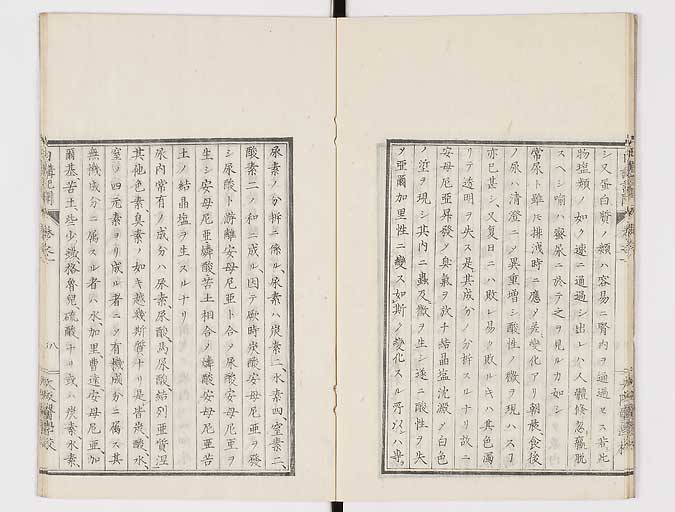 シ又蛋白質ノ類ハ容易ニ腎内ヲ通過セス若此
物塩類ノ如ク速ニ通過シ出レハ人體修忽羸脱
スヘシ喻ハ蜜尿ニ於テ之ヲ見ルカ如シ
常尿ト雖𪜈排泄時ニ應メ差變化アリ朝飧食後
ノ尿ハ清澄ニメ異重増シ酸性ノ徴ヲ現ハスヿ
亦已甚シ又夏日ニハ敗レ易ク敗ルキハ其色濁
リテ透明ヲ失ス是其成分ノ分析スルナリ故ニ
安母尼亜昇發ノ臭氣ヲ放チ結晶塩沈澱メ白色
ノ涖ヲ現シ其内ニ蟲及黴ヲ生シ遂ニ酸性ヲ失
ヲ亜爾加里性ニ變ス如斯ク變化スル所以ハ専
尿素ノ分拆ニ係ル尿素ハ炭素二、水素四、窒素二、
酸素二ノ和ニ成ル因テ敗時炭酸安母尼亜ヲ發
シ尿酸ト游離安母尼亜ト合メ尿酸安母尼亜ヲ
生シ安母尼亜燐酸苦土相合メ燐酸安母尼亜苦
土ノ結晶塩ヲ生スルナリ
尿内常有ノ成分ハ尿素尿酸、馬尿酸、結列亜質涅
其他色素臭素ノ如キ越幾斯質ナリ是皆炭酸、水、
窒ノ四元素ヲリ成ル者ニメ有機成分ニ属ス其
無機成分ニ属スル者ハ水、加里、曹達、安母尼亜、加
爾基、苦土、些少鐵、格魯兒、硫酸ナリ或ハ炭素水素